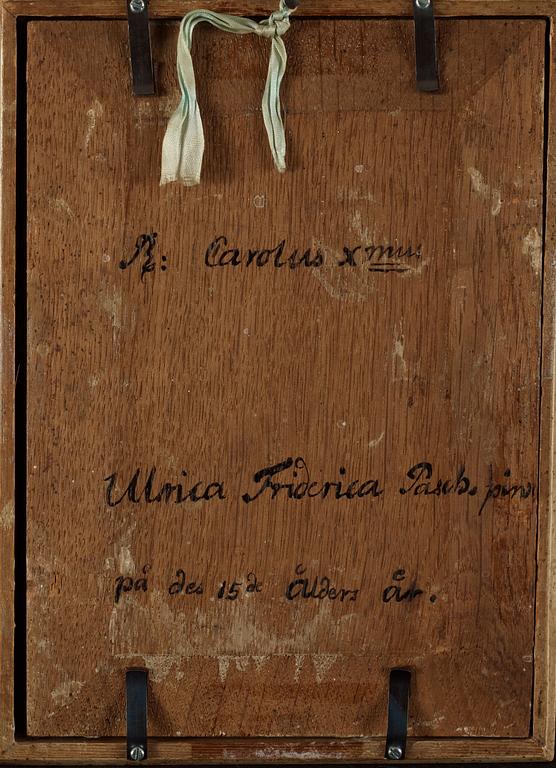 R: Carolus xmus
Ulrica Friderica Pasch. pinx
på des 15de ålders år.